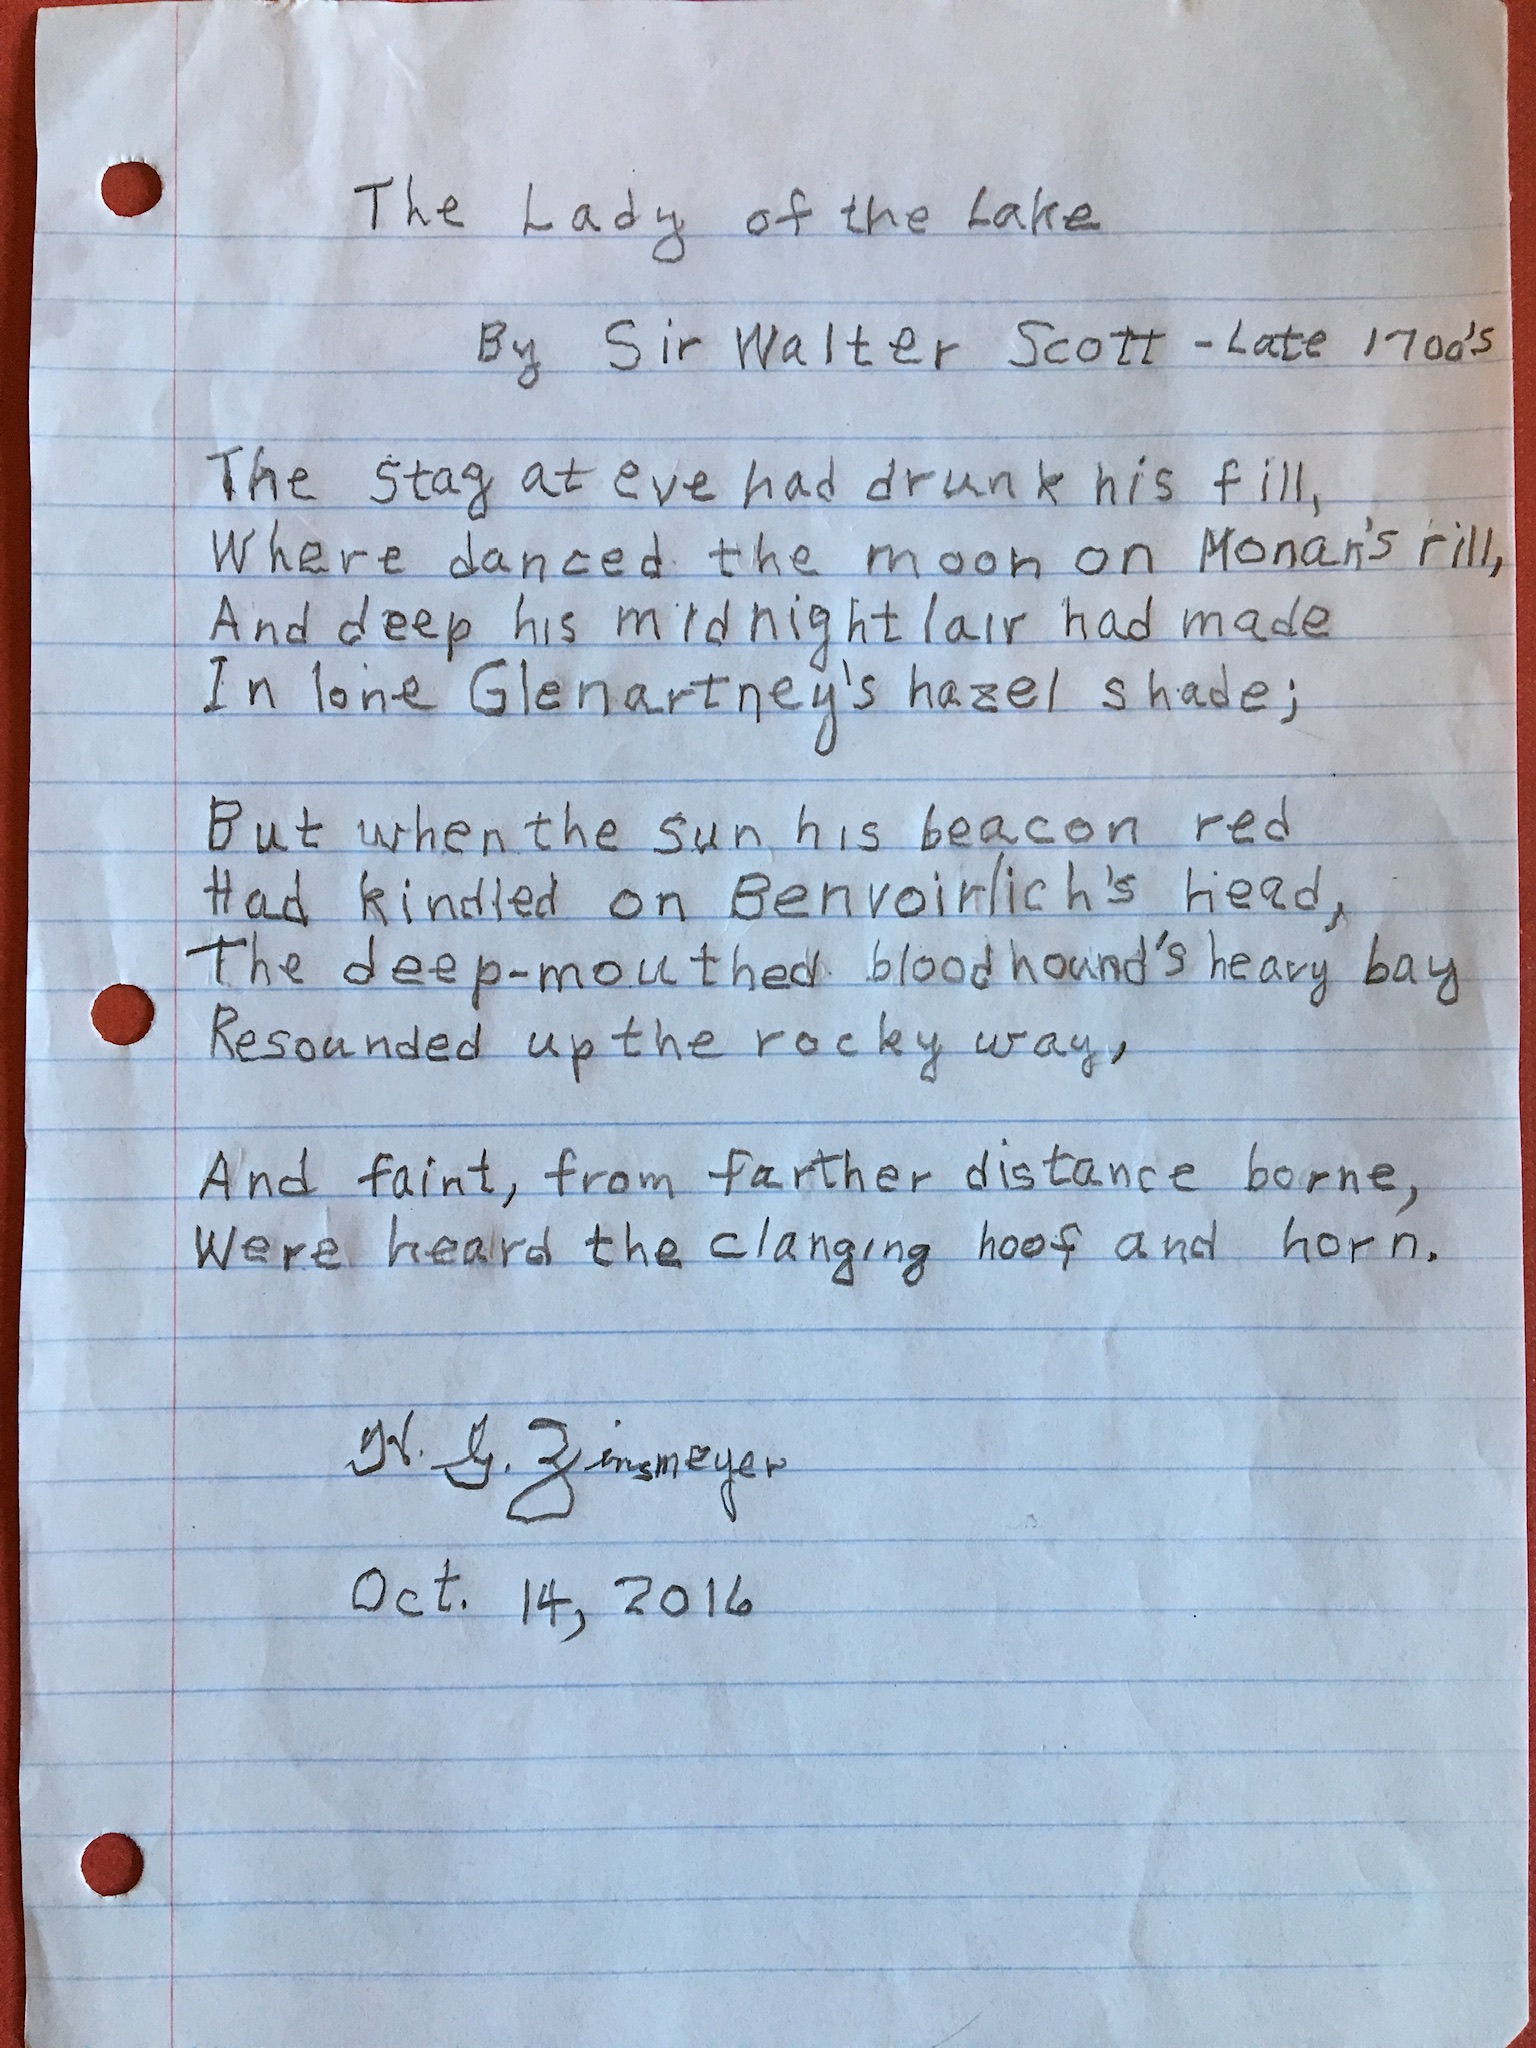 The Lady of the Lake
By Sir Walter Scott - Late 1700's
The stag at eve had drunk his fill,
Where danced the moon on Monan's rill,
And deep his midnight lair had made
In lone Glenartney's hazel shade;
But when the sun his beacon red
Had kindled on Benvoirlich's head,
The deep-mouthed bloodhound's heavy bay
Resounded up the rocky way,
And faint, from farther distance borne,
Were heard the clanging hoof and horn.
H. G. Zinsmeyer
Oct. 14, 2016